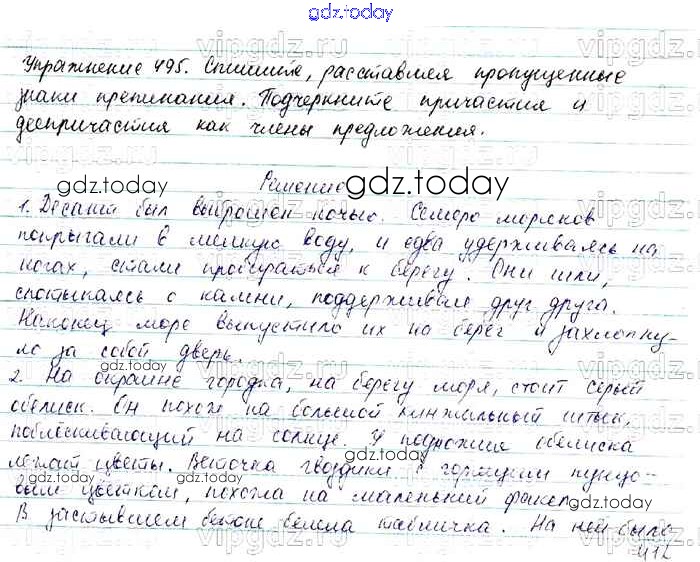 gdz.today
Упражнение 495. Спишите, расставляя пропущенные
знаки препинания. Подчеркните причастия и
деепричастия как члены предложения.
gdz.today
Решение gdz.today
1. Десант был выброшен ночью. Семеро моряков
попрыгали в мелкую воду, и едва удерживаясь на
ногах, стали пробираться к берегу. Они шли,
спотыкаясь о камни, поддерживая друг друга.
Наконец море выпустило их на берег и захлопну-
ло за собой дверь.
2. На окраине городка, на берегу моря, стоит серый
обелиск. Он похож на большой кинжальный штык,
поблёскивающий на солнце. У подножия обелиска
лежат цветы. Веточка гвоздики с горящим пунцо-
вым цветком, похожа на маленький факел.
В застывшем бетоне белела табличка. На ней было
412